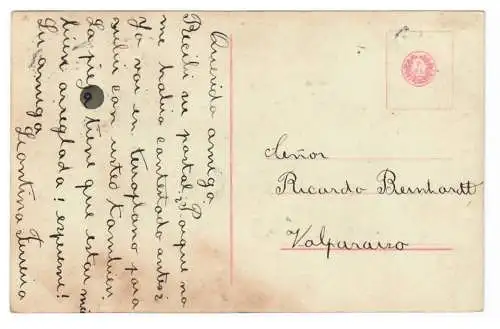 Querido amigo.
Recibi su postal; Porque no
me habia contestado antes?
Yo voi en temprano para
salir con usted tambien.
La pieza tiene que estar mui
bien arreglada! espereme!
Su amiga
Leontina Ferreira
Señor
Ricardo Beinhardt
Valparaiso